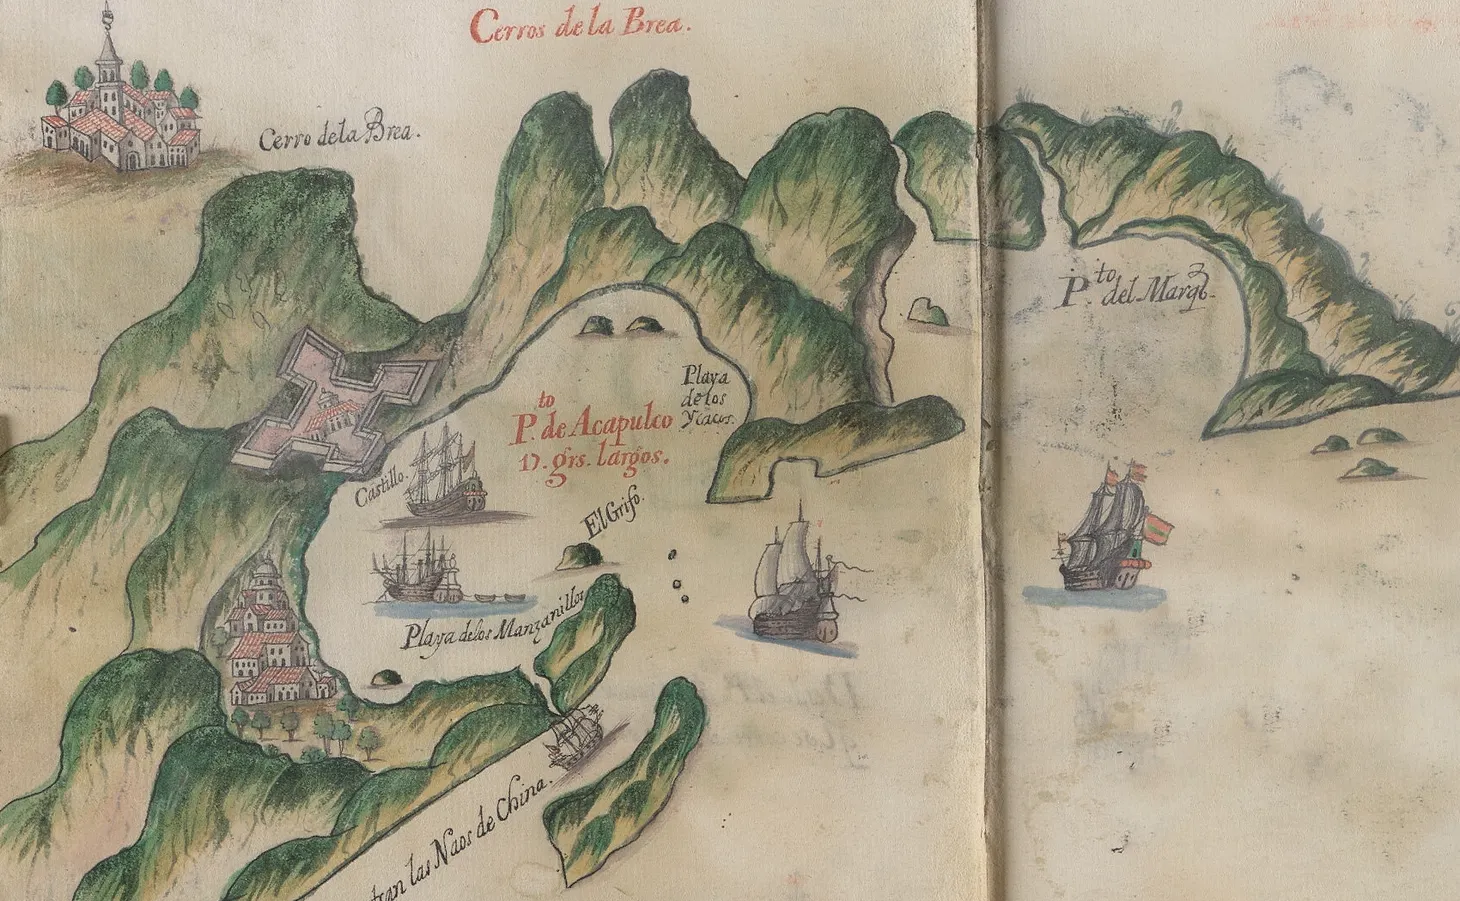 Cerros de la Brea.
Cerro dela Brea.
P.to del Marqs.
Playa
de los
P.to de Acapulco
17. grs. largos.
Castillo.
El Grifo.
Playa delos Manzanillos
tran las Naos de China.